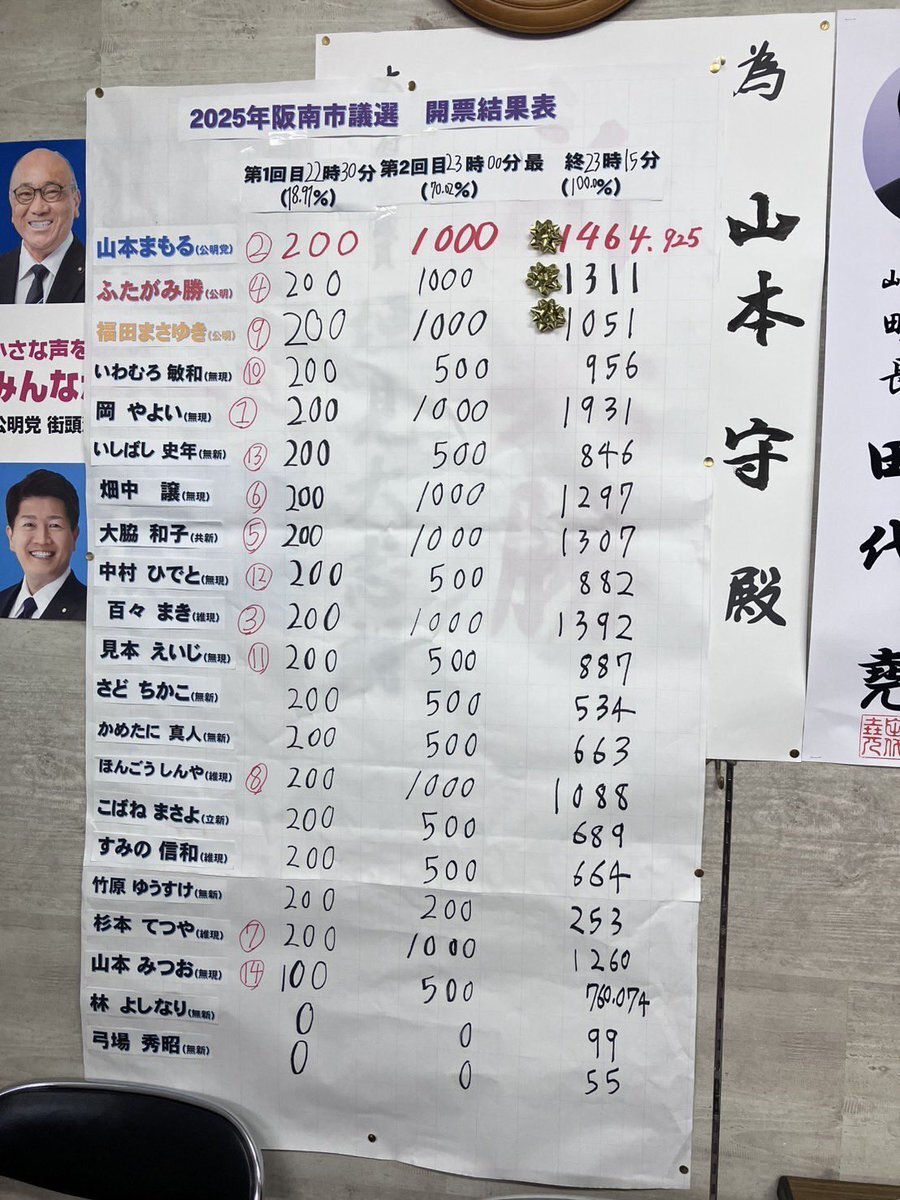 2025年阪南市議選 開票結果表
第1回目22時30分 第2回目23時00分 最終23時15分
(18.97%) (70.02%) (100.0%)
山本まもる(公明党) ② 200 1000 1464.925
ふたがみ勝(公明) ④ 200 1000 1311
福田まさゆき(公明) ⑨ 200 1000 1051
いわむろ 敏和(無現) ⑩ 200 500 956
岡 やよい(無現) ① 200 1000 1931
いしばし 史年(無新) ⑬ 200 500 846
畑中 譲(無現) ⑥ 200 1000 1297
大脇 和子(共新) ⑤ 200 1000 1307
中村 ひでと(無現) ⑫ 200 500 882
百々 まき(維現) ③ 200 1000 1392
見本 えいじ(無現) ⑪ 200 500 887
さど ちかこ(無新) 200 500 534
かめたに 真人(無新) 200 500 663
ほんごう しんや(維現) ⑧ 200 1000 1088
こばね まさよ(立新) 200 500 689
すみの 信和(維現) 200 500 664
竹原 ゆうすけ(無新) 200 200 253
杉本 てつや(維現) ⑦ 200 1000 1260
山本 みつお(無現) ⑭ 100 500 760.074
林 よしなり(無新) 0 0 99
弓場 秀昭(無新) 0 0 55
為 山本守殿
田代堯
小さな声を
みんな
公明党 街頭